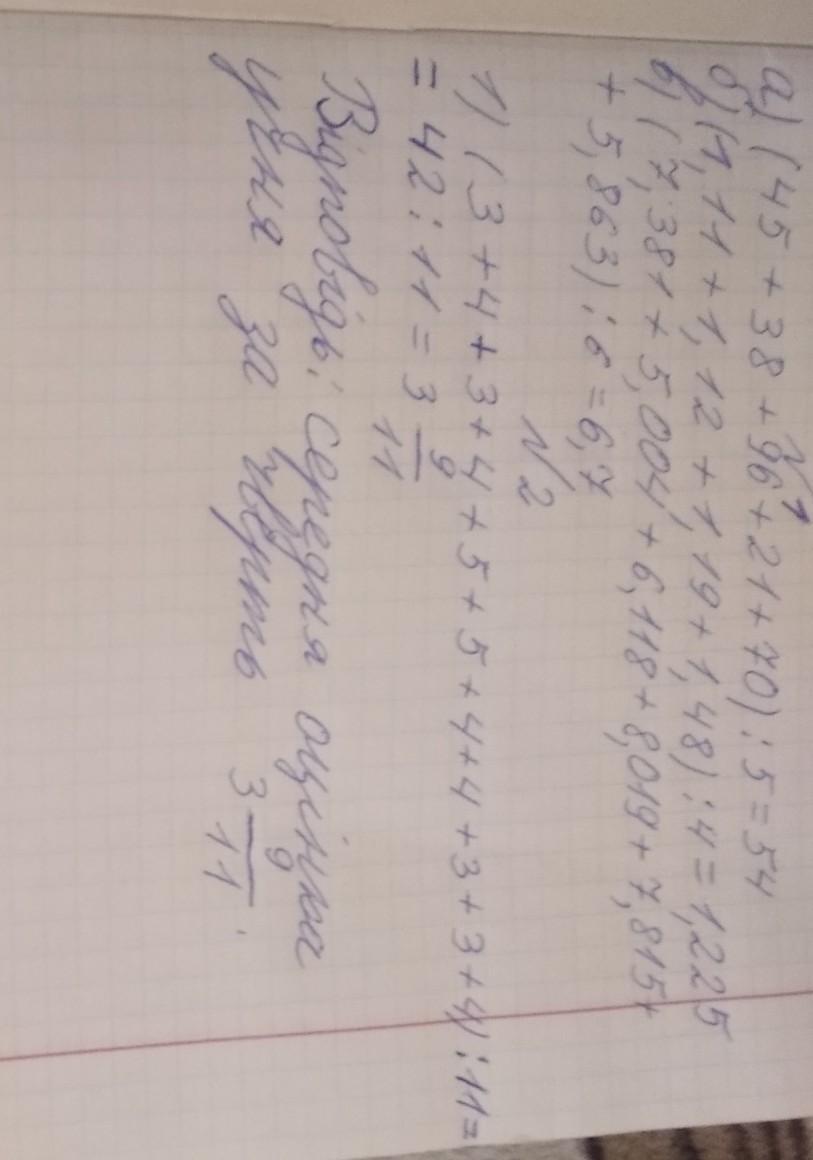 N1
а) (45+38+96+21+70):5=54
б) (1,11+1,12+1,19+1,48):4=1,225
в) (7,381+5,004+6,118+8,019+7,815+
+5,863):6=6,7
N2
1) (3+4+3+4+5+5+4+4+3+3+4):11=
=42:11=3 9/11
Відповідь: середня оцінка
учня за чверть 3 9/11.